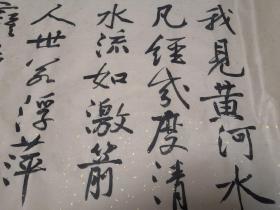 我見黄河水
凡經幾度清
水流如激箭
人世若浮萍